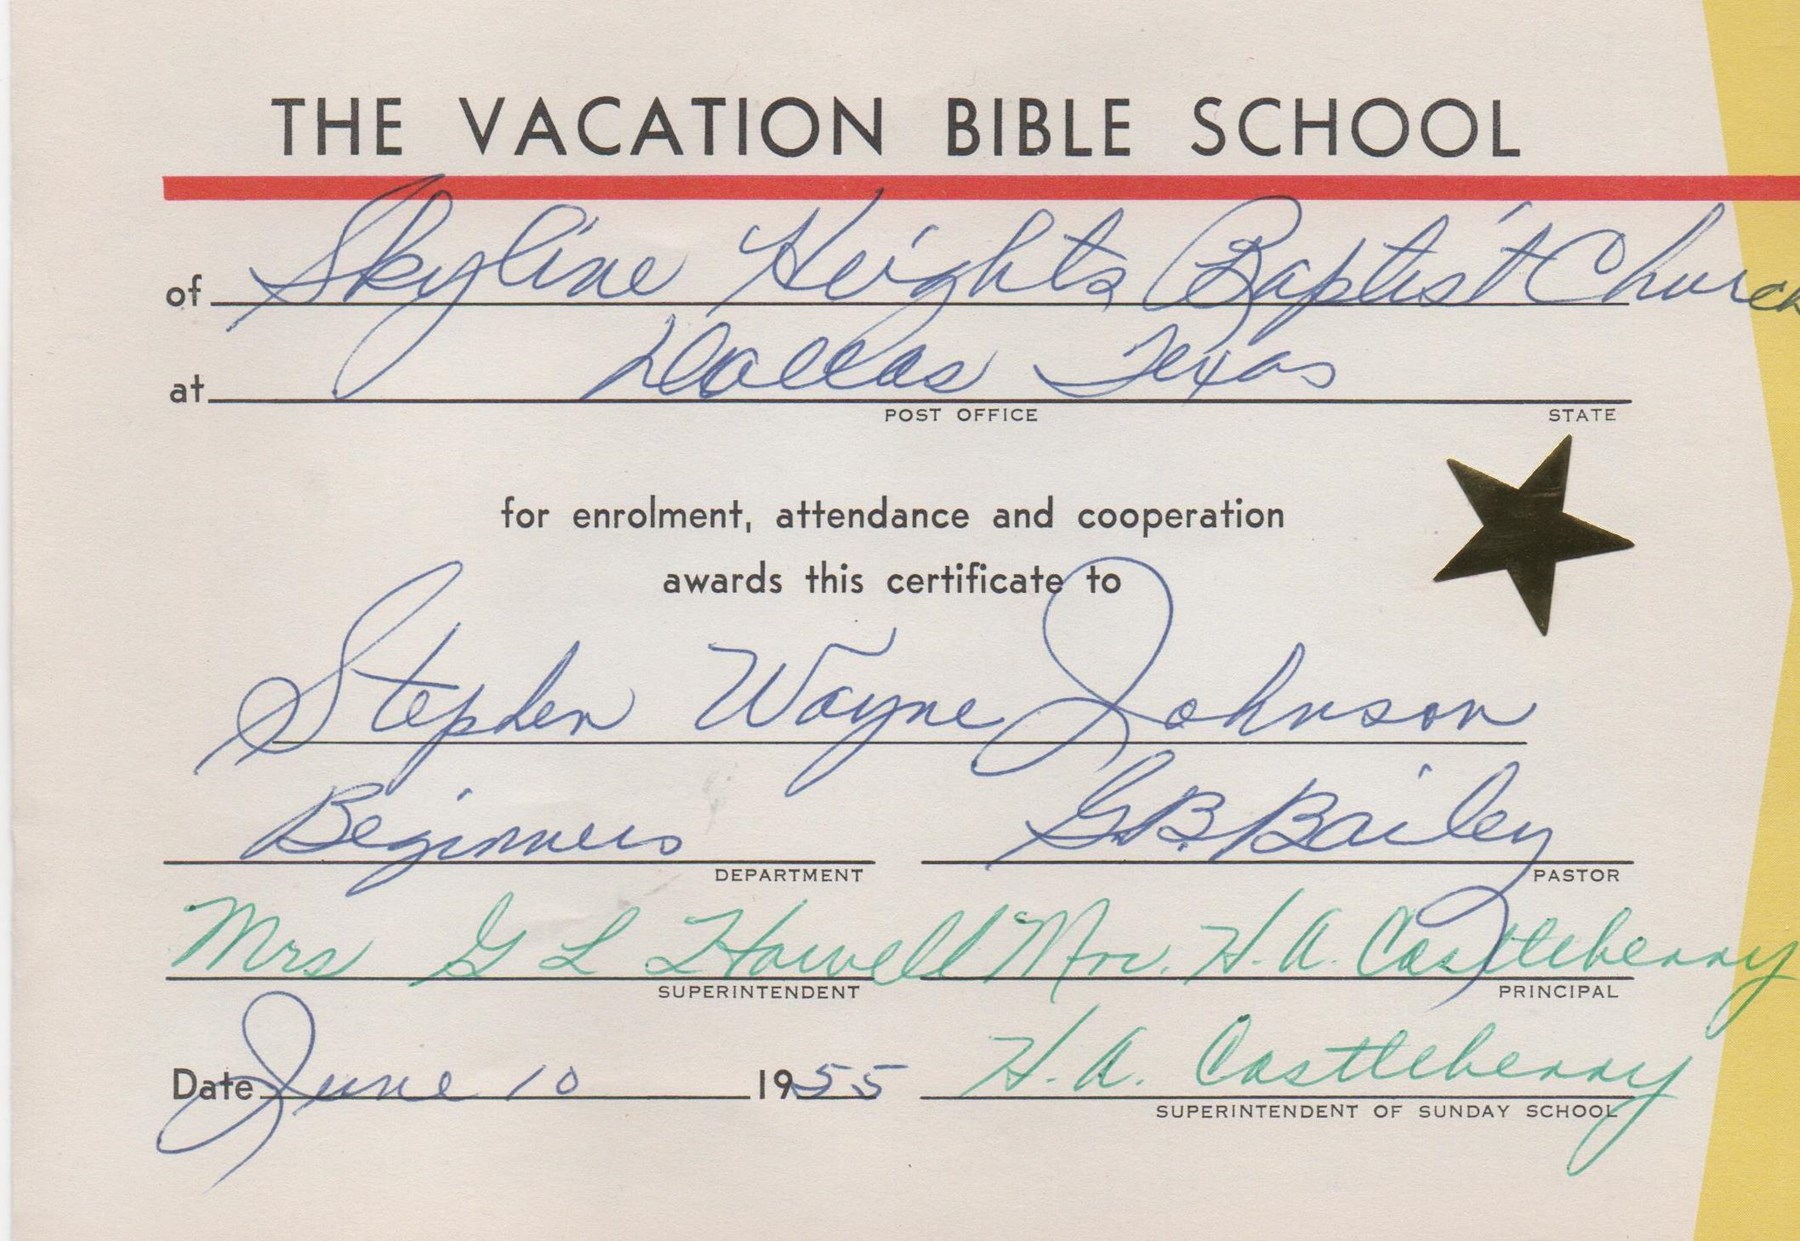 THE VACATION BIBLE SCHOOL
of Skyline Heights Baptist Church
at Dallas Texas
POST OFFICE STATE
for enrolment, attendance and cooperation
awards this certificate to
Stephen Wayne Johnson
Beginners G.B. Bailey
DEPARTMENT PASTOR
Mrs G L Howell Mrs. H. A. Castleberry
SUPERINTENDENT PRINCIPAL
Date June 10 1955 H. A. Castleberry
SUPERINTENDENT OF SUNDAY SCHOOL